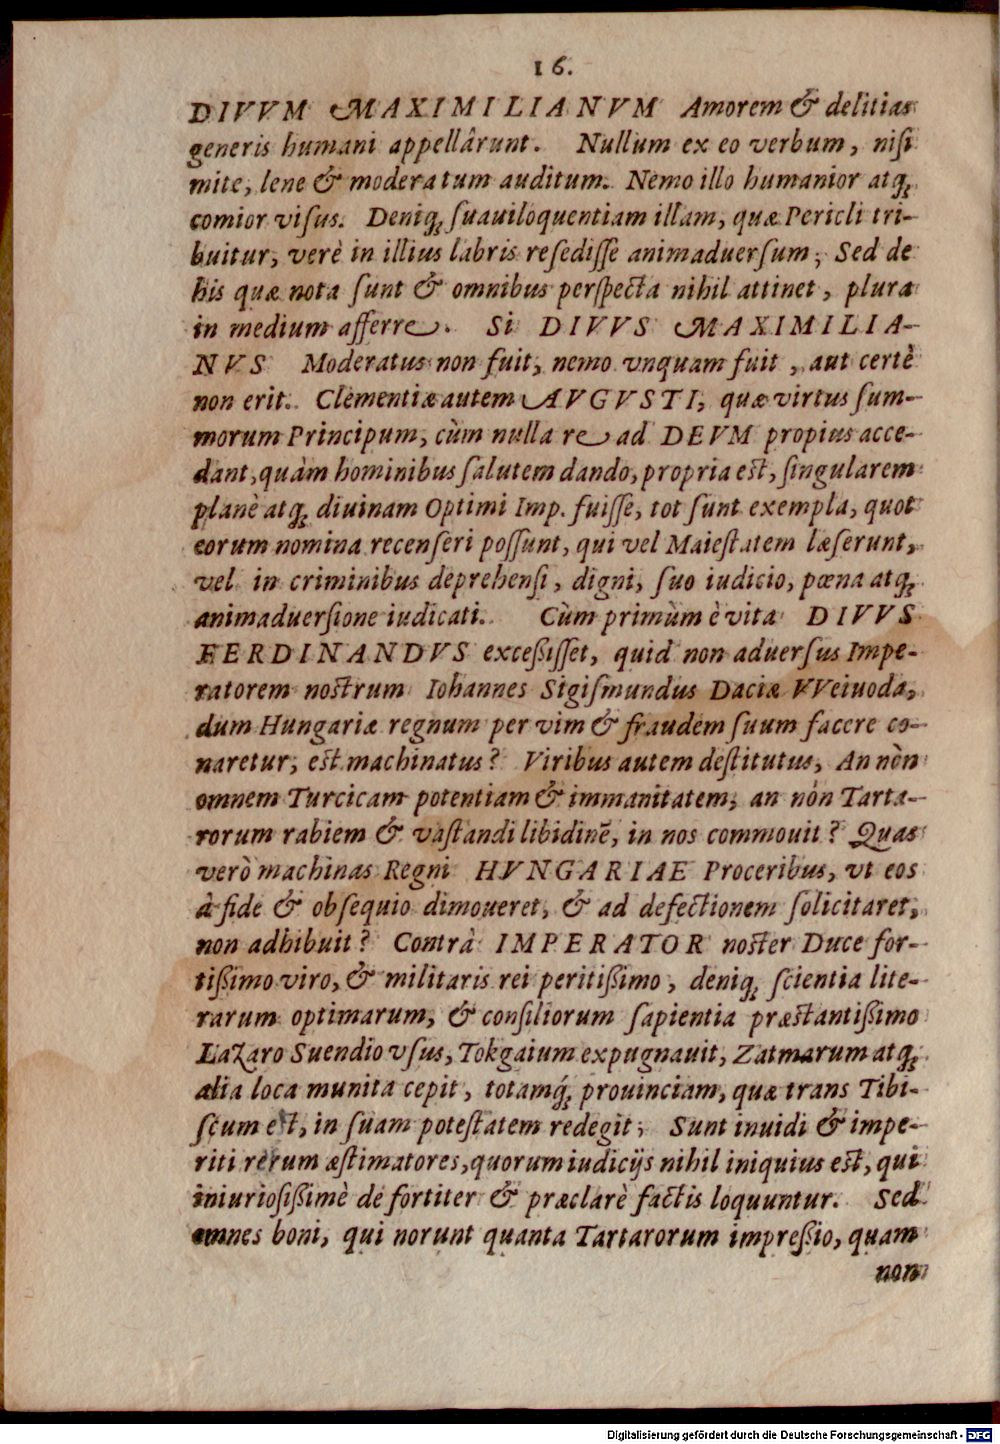 16.
DIVVM MAXIMILIANVM Amorem & delitias
generis humani appellârunt. Nullum ex eo verbum, nisi
mite, lene & moderatum auditum. Nemo illo humanior atq;
comior visus. Deniq; suauiloquentiam illam, quæ Pericli tri-
buitur, verè in illius labris resedisse animaduersum; Sed de
his quæ nota sunt & omnibus perspecta nihil attinet, plura
in medium afferre. Si DIVVS MAXIMILIA-
NVS Moderatus non fuit, nemo vnquam fuit, aut certè
non erit. Clementiæ autem AVGVSTI, quæ virtus sum-
morum Principum, cùm nulla re ad DEVM propius acce-
dant, quàm hominibus salutem dando, propria est, singularem
planè atq; diuinam Optimi Imp. fuisse, tot sunt exempla, quot
eorum nomina recenseri possunt, qui vel Maiestatem læserunt,
vel in criminibus deprehensi, digni, suo iudicio, pœna atq;
animaduersione iudicati. Cùm primùm è vita DIVVS
FERDINANDVS excessisset, quid non aduersus Impe-
ratorem nostrum Iohannes Sigismundus Daciæ VVeiuoda,
dum Hungariæ regnum per vim & fraudem suum facere co-
naretur, est machinatus? Viribus autem destitutus, An nòn
omnem Turcicam potentiam & immanitatem, an nón Tarta-
rorum rabiem & vastandi libidinē, in nos commouit? Quas
verò machinas Regni HVNGARIAE Proceribus, vt eos
à fide & obsequio dimoueret, & ad defectionem solicitaret,
non adhibuit? Contrà IMPERATOR noster Duce for-
tissimo viro, & militaris rei peritissimo, deniq; scientia lite-
rarum optimarum, & consiliorum sapientia præstantissimo
Lazaro Suendio vsus, Tokgaium expugnauit, Zatmarum atq;
alia loca munita cepit, totamq́; prouinciam, quæ trans Tibi-
scum est, in suam potestatem redegit; Sunt inuidi & impe-
riti rerum æstimatores, quorum iudicijs nihil iniquius est, qui
iniuriosissimè de fortiter & præclarè factis loquuntur. Sed
omnes boni, qui norunt quanta Tartarorum impressio, quam
non
Digitalisierung gefördert durch die Deutsche Forschungsgemeinschaft - DFG